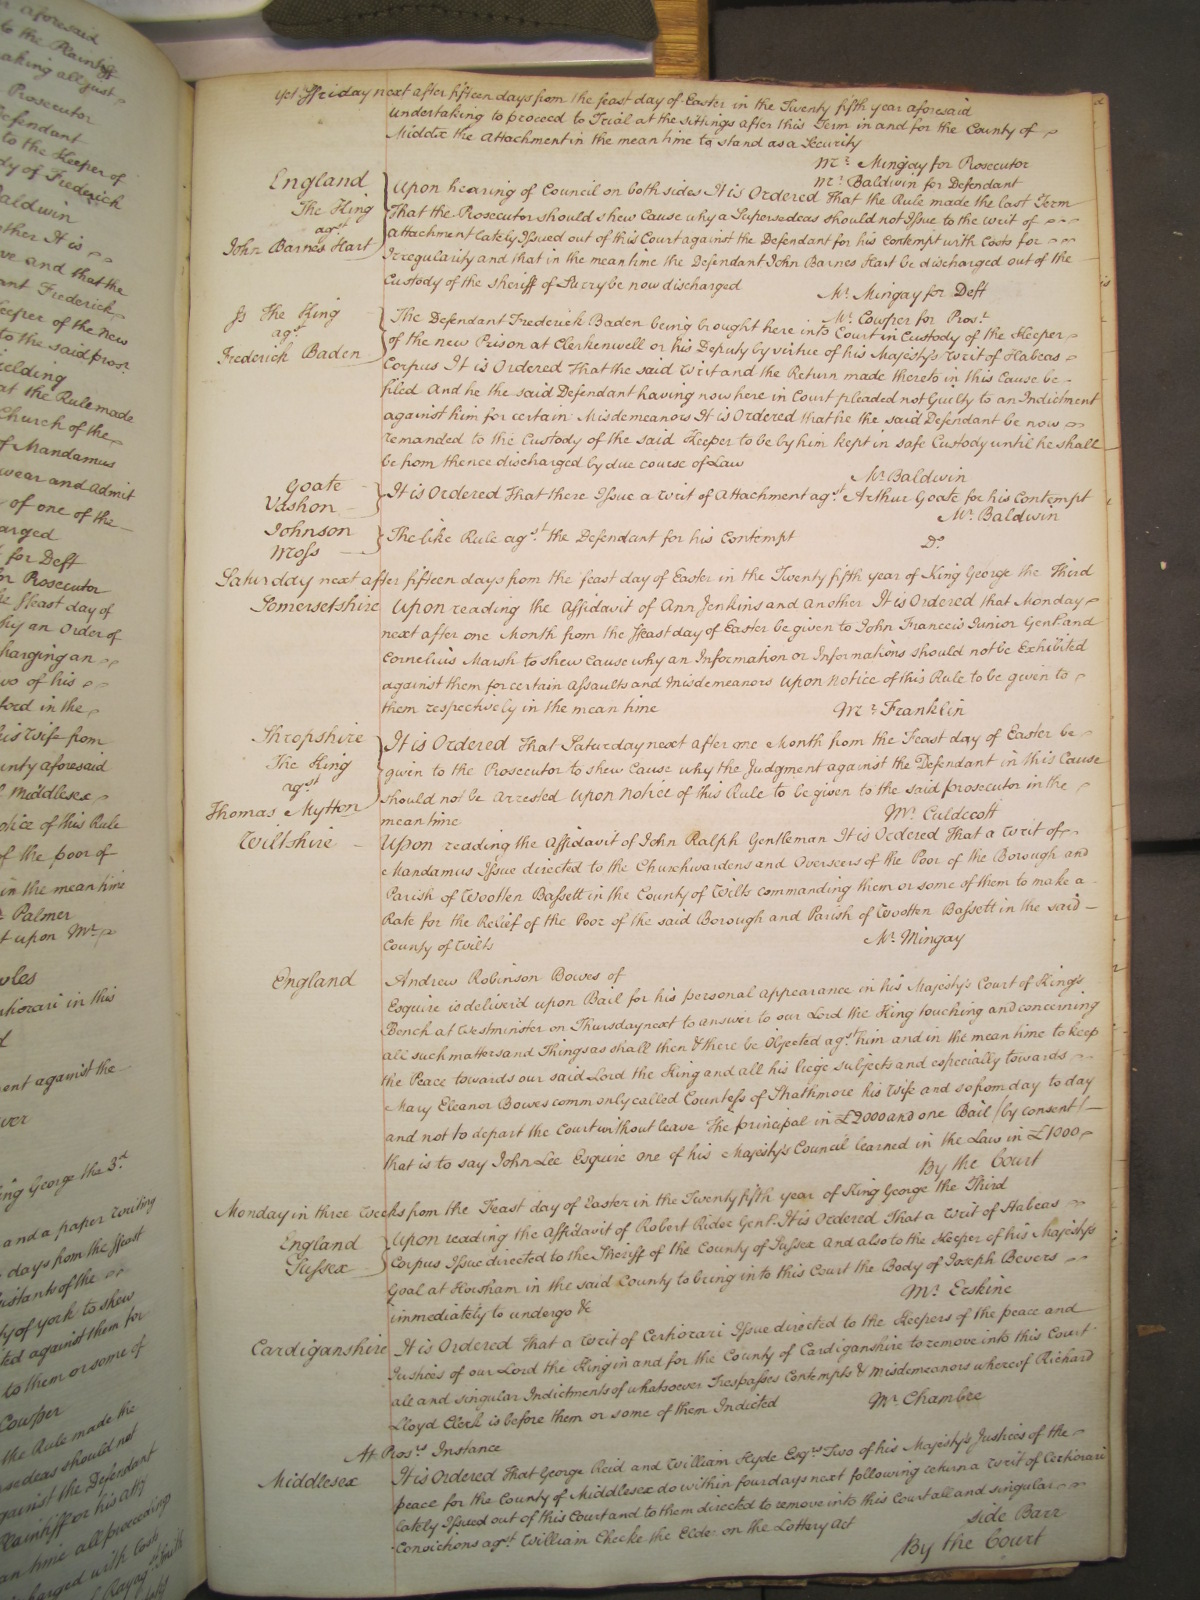 r aforesaid
to the Plaintiff
aking all just
Prosecutor
Defendant
to the Keeper of
dy of Frederick
Baldwin
ther It is
ve and that the
ant Frederick
eeper of the new
to the said pros.r
ielding
at the Rule made
Church of the
of Mandamus
wear and admit
of one of the
arged
for Deft
on Prosecutor
he ffeast day of
by an Order of
harging an
wo of his
ford in the
his Wife from
unty aforesaid
Middlesex
otice of this Rule
of the poor of
in the mean time
Palmer
t upon Mr.
wles
rtiorari in this
d
ent against the
ver
ing George the 3.d
and a paper writing
days from the ffeast
bistants of the
ty of york to shew
ted against them for
to them or some of
Cowper
the Rule made the
sedeas should not
against the Defendant
Plaintiff or his atty
an time all proceeding
charged with Costs
yet Ffriday next after fifteen days from the feast day of Easter in the Twenty fifth year aforesaid
undertaking to proceed to Trial at the sittings after this Term in and for the County of
Middx the Attachment in the mean time to stand as a Security
Mr. Mingay for Prosecutor
Mr. Baldwin for Defendant
England
The King
agst
John Barnes Hart
Upon hearing of Council on both sides It is Ordered That the Rule made the last Term
That the Prosecutor should shew Cause why a Supersedeas should not Issue to the writ of
attachment lately Issued out of this Court against the Defendant for his Contempt with Costs for
Irregularity and that in the mean time the Defendant John Barnes Hart be discharged out of the
Custody of the Sheriff of Surry be now discharged
Mr. Mingay for Deft
Mr. Cowper for Pros.r
The King
agst
Frederick Baden
The Defendant Frederick Baden being brought here into Court in Custody of the Keeper
of the new Prison at Clerkenwell or his Deputy by virtue of his Majesty's Writ of Habeas
Corpus It is Ordered That the said Writ and the Return made thereto in this Cause be
filed And he the said Defendant having now here in Court pleaded not Guilty to an Indictment
against him for certain Misdemeanors It is Ordered that he the said Defendant be now
remanded to the Custody of the said Keeper to be by him kept in safe Custody until he shall
be from thence discharged by due course of Law
Mr. Baldwin
Goate
Vashon
It is Ordered That there Issue a writ of Attachment agst. Arthur Goate for his Contempt
Mr. Baldwin
Johnson
Moss
The like Rule agst. the Defendant for his Contempt
Do.
Saturday next after fifteen days from the feast day of Easter in the Twenty fifth year of King George the Third
Somersetshire
Upon reading the Affidavit of Ann Jenkins and another It is Ordered that Monday
next after one Month from the ffeast day of Easter be given to John Francis Junior Gent. and
Cornelius Marsh to shew Cause why an Information or Informations should not be Exhibited
against them for certain Assaults and Misdemeanors Upon Notice of this Rule to be given to
them respectively in the mean time
Mr. Franklin
Shropshire
The King
agst
Thomas Mytton
It is Ordered That Saturday next after one Month from the Feast day of Easter be
given to the Prosecutor to shew Cause why the Judgment against the Defendant in this Cause
should not be Arrested Upon Notice of this Rule to be given to the said prosecutor in the
mean time
Mr. Caldicott
Wiltshire
Upon reading the Affidavit of John Ralph Gentleman It is Ordered That a writ of
Mandamus Issue directed to the Churchwardens and Overseers of the Poor of the Borough and
Parish of Wootten Bassett in the County of Wilts commanding them or some of them to make a
Rate for the Relief of the Poor of the said Borough and Parish of Wootten Bassett in the said
County of Wilts
Mr. Mingay
England
Andrew Robinson Bowes of
Esquire is deliver'd upon Bail for his personal appearance in his Majesty's Court of King's
Bench at Westminster on Thursday next to answer to our Lord the King touching and concerning
all such matters and Things as shall then & there be Objected agst. him and in the mean time to keep
the Peace towards our said Lord the King and all his liege subjects and especially towards
Mary Eleanor Bowes commonly called Countess of Strathmore his Wife and so from day to day
and not to depart the Court without leave The principal in £2000 and one Bail (by consent)
that is to say John Lee Esquire one of his Majesty's Council learned in the Law in £1000
By the Court
Monday in three Weeks from the Feast day of Easter in the Twenty fifth year of King George the Third
England
Sussex
Upon reading the Affidavit of Robert Rider Gent. It is Ordered That a Writ of Habeas
Corpus Issue directed to the Sheriff of the County of Sussex And also to the Keeper of his Majesty's
Goal at Horsham in the said County to bring into this Court the Body of Joseph Bevers
immediately to undergo &c
Mr. Erskine
Cardiganshire
It is Ordered That a Writ of Certiorari Issue directed to the Keepers of the peace and
Justices of our Lord the King in and for the County of Cardiganshire to remove into this Court
all and singular Indictments of whatsoever Trespasses Contempts & Misdemeanors whereof Richard
Lloyd Clerk is before them or some of them Indicted
Mr. Chambre
At Pros.rs Instance
Middlesex
It is Ordered That George Reid and William Hyde Esqrs Two of his Majesty's Justices of the
peace for the County of Middlesex do within four days next following return a Writ of Certiorari
lately Issued out of this Court and to them directed to remove into this Court all and singular
Convictions agst. William Cheeke the Elder on the Lottery Act
side Barr
By the Court